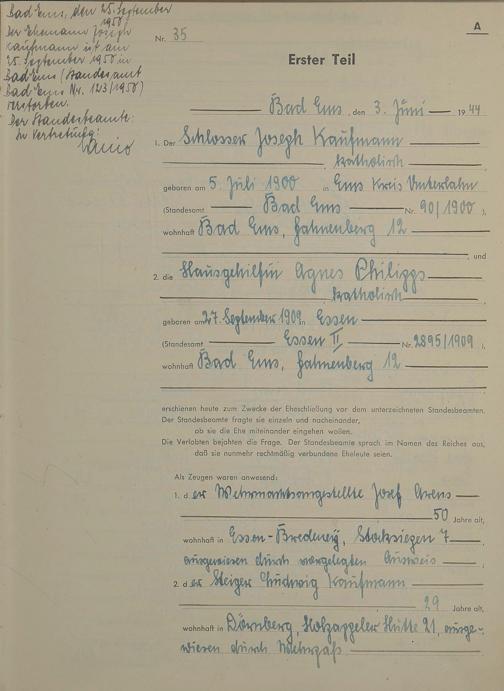 Bad Ems, den 25. September
1958
Der Ehemann Joseph
Kaufmann ist am
25. September 1958 in
Bad Ems (Standesamt
Bad Ems Nr. 123/1958)
verstorben.
Der Standesbeamte:
In Vertretung:
Nr. 35
A
Erster Teil
Bad Ems, den 3. Juni 1944
1. Der Schlosser Joseph Kaufmann
katholisch
geboren am 5. Juli 1900 in Ems Kreis Unterlahn
(Standesamt Bad Ems Nr. 90/1900),
wohnhaft Bad Ems, Hahnenberg 12
und
2. die Hausgehilfin Agnes Philipps
katholisch
geboren am 27. September 1909 in Essen
(Standesamt Essen II Nr. 2895/1909),
wohnhaft Bad Ems, Hahnenberg 12
erschienen heute zum Zwecke der Eheschließung vor dem unterzeichneten Standesbeamten.
Der Standesbeamte fragte sie einzeln und nacheinander,
ob sie die Ehe miteinander eingehen wollen.
Die Verlobten bejahten die Frage. Der Standesbeamte sprach im Namen des Reiches aus,
daß sie nunmehr rechtmäßig verbundene Eheleute seien.
Als Zeugen waren anwesend:
1. der Wehrmachtsangestellte Josef Arens
50 Jahre alt,
wohnhaft in Essen-Bredeney, Stocksiegen 7
ausgewiesen durch vorgelegten Ausweis
2. der Steiger Ludwig Kaufmann
29 Jahre alt,
wohnhaft in Dörnberg, Holzappeler Hütte 21, ausge-
wiesen durch Wehrpaß